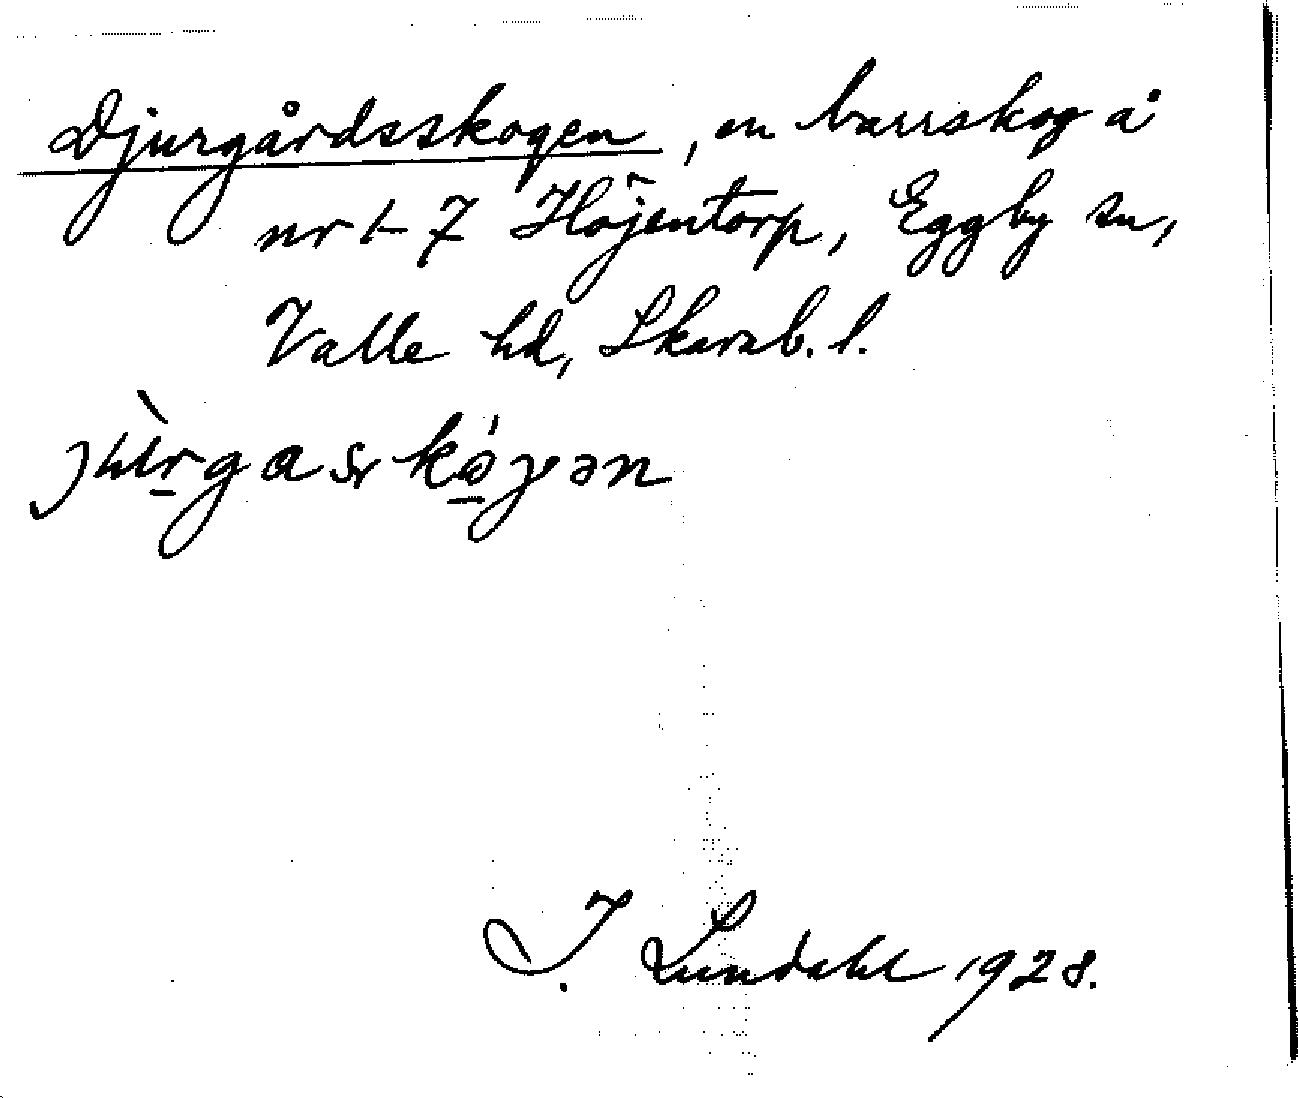 Djurgårdsskogen, en barrskog å
nr 1-7 Höjentorp, Eggby sn,
Valle hd, Skarab. l.
J. Lundahl 1928.